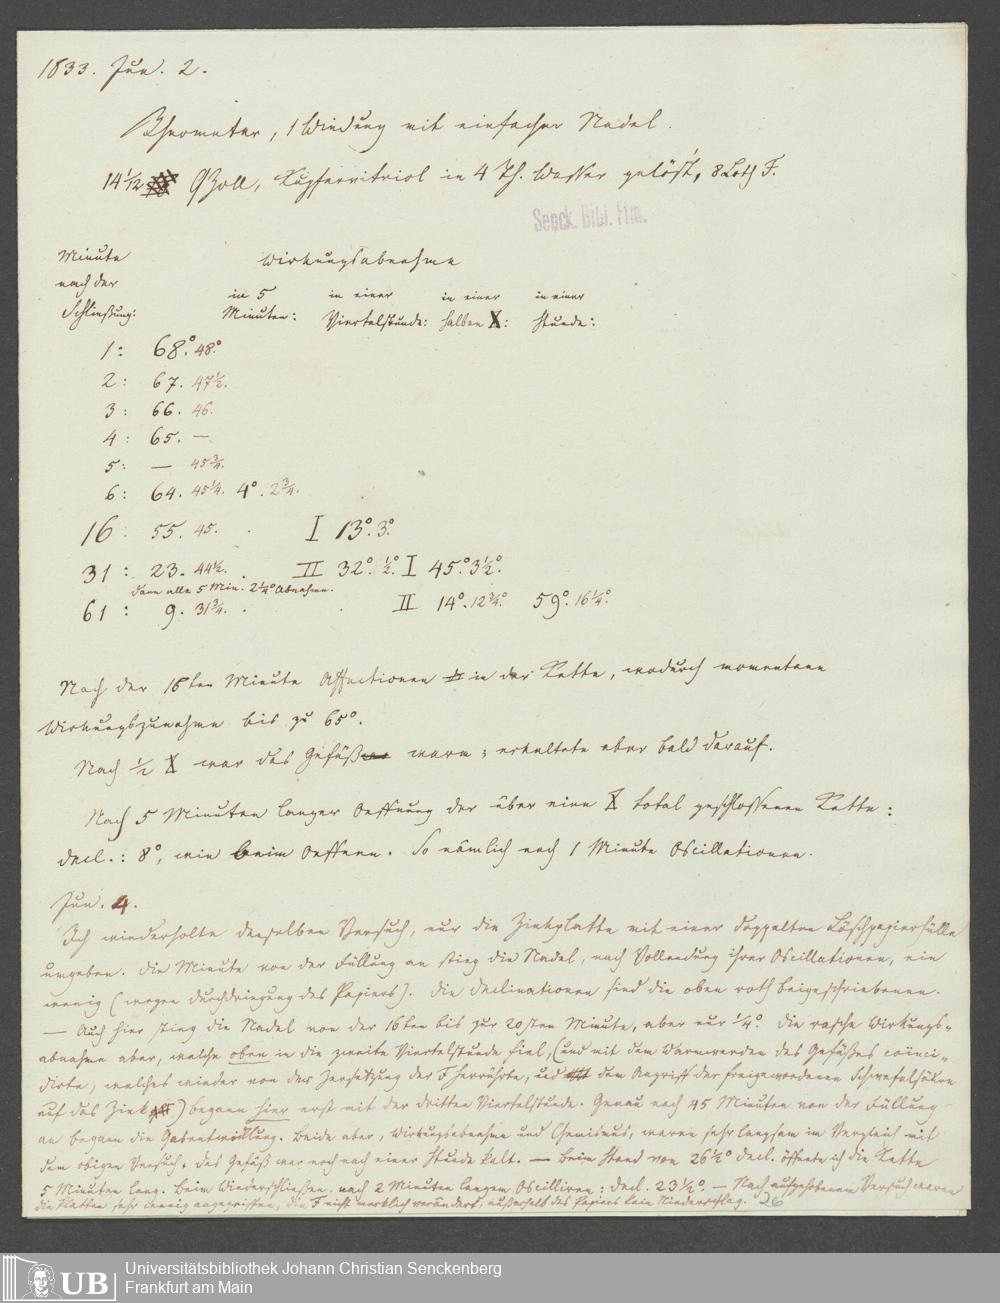 1833. Jun. 2.
Rheometer, 1 Windung mit einfacher Nadel.
14 1/2 QZoll, Kupfervitriol in 4 Th. Wasser gelöst, 8 Loth F.
Senck. Bibl. Ffm.
Minute
nach der
Schließung:
Wirkungsabnahme
in 5 Minuten:
in einer Viertelstunde:
in einer halben X:
in einer Stunde:
1: 68°. 48°.
2: 67. 47 1/2.
3: 66. 46.
4: 65. —
5: — 45 3/4.
6: 64. 45 1/4. 4°. 2 3/4.
16: 55. 45. . I 13°. 3°.
31: 23. 44 1/2. . II 32°. 1/2°. I 45°. 3 1/2°.
dann alle 5 Min. 2 1/4° Abnahme.
61: 9. 31 3/4. . . II 14°. 12 3/4°. 59°. 16 1/4°.
Nach der 16ten Minute Affectionen in der Kette, wodurch momentane
Wirkungszunahme bis zu 65°.
Nach 1/2 X war das Gefäß warm; erkaltete aber bald darauf.
Nach 5 Minuten langer Oeffnung der über eine X total geschlossenen Kette:
decl.: 8°, wie beim Oeffnen. So nämlich nach 1 Minute Oscillationen.
Jun. 4.
Ich wiederholte denselben Versuch, nur die Zinkplatte mit einer doppelten Löschpapierhülle
umgeben. Die Minute von der Füllung an stieg die Nadel, nach Vollendung ihrer Oscillationen, ein
wenig (wegen Durchdringung des Papiers). Die Declinationen sind die oben roth beigeschriebenen.
— Auch hier stieg die Nadel von der 16ten bis zur 20sten Minute, aber nur 1/4°. Die rasche Wirkungs-
abnahme aber, welche oben in die zweite Viertelstunde fiel, (und mit dem Warmwerden des Gefäßes coinci-
dirte, welches wieder von der Zersetzung der F herrührte, und dem Angriff der freigewordenen Schwefelsäure
auf das Zink) begann hier erst mit der dritten Viertelstunde. Genau nach 45 Minuten von der Füllung
an begann die Gasentwicklung. Beide aber, Wirkungsabnahme und Chemismus, waren sehr langsam im Vergleich mit
dem obigen Versuch, das Gefäß war noch nach einer Stunde kalt. — Beim Stand von 26 1/2° decl. öffnete ich die Kette
5 Minuten lang. Beim Wiederschließen nach 2 Minuten langem Oscilliren: decl. 23 1/2°. — Nach aufgehobenem Versuch waren
die Platten sehr wenig angegriffen, die F nicht merklich verändert, außerhalb des Papiers kein Niederschlag.
26
UB
Universitätsbibliothek Johann Christian Senckenberg
Frankfurt am Main